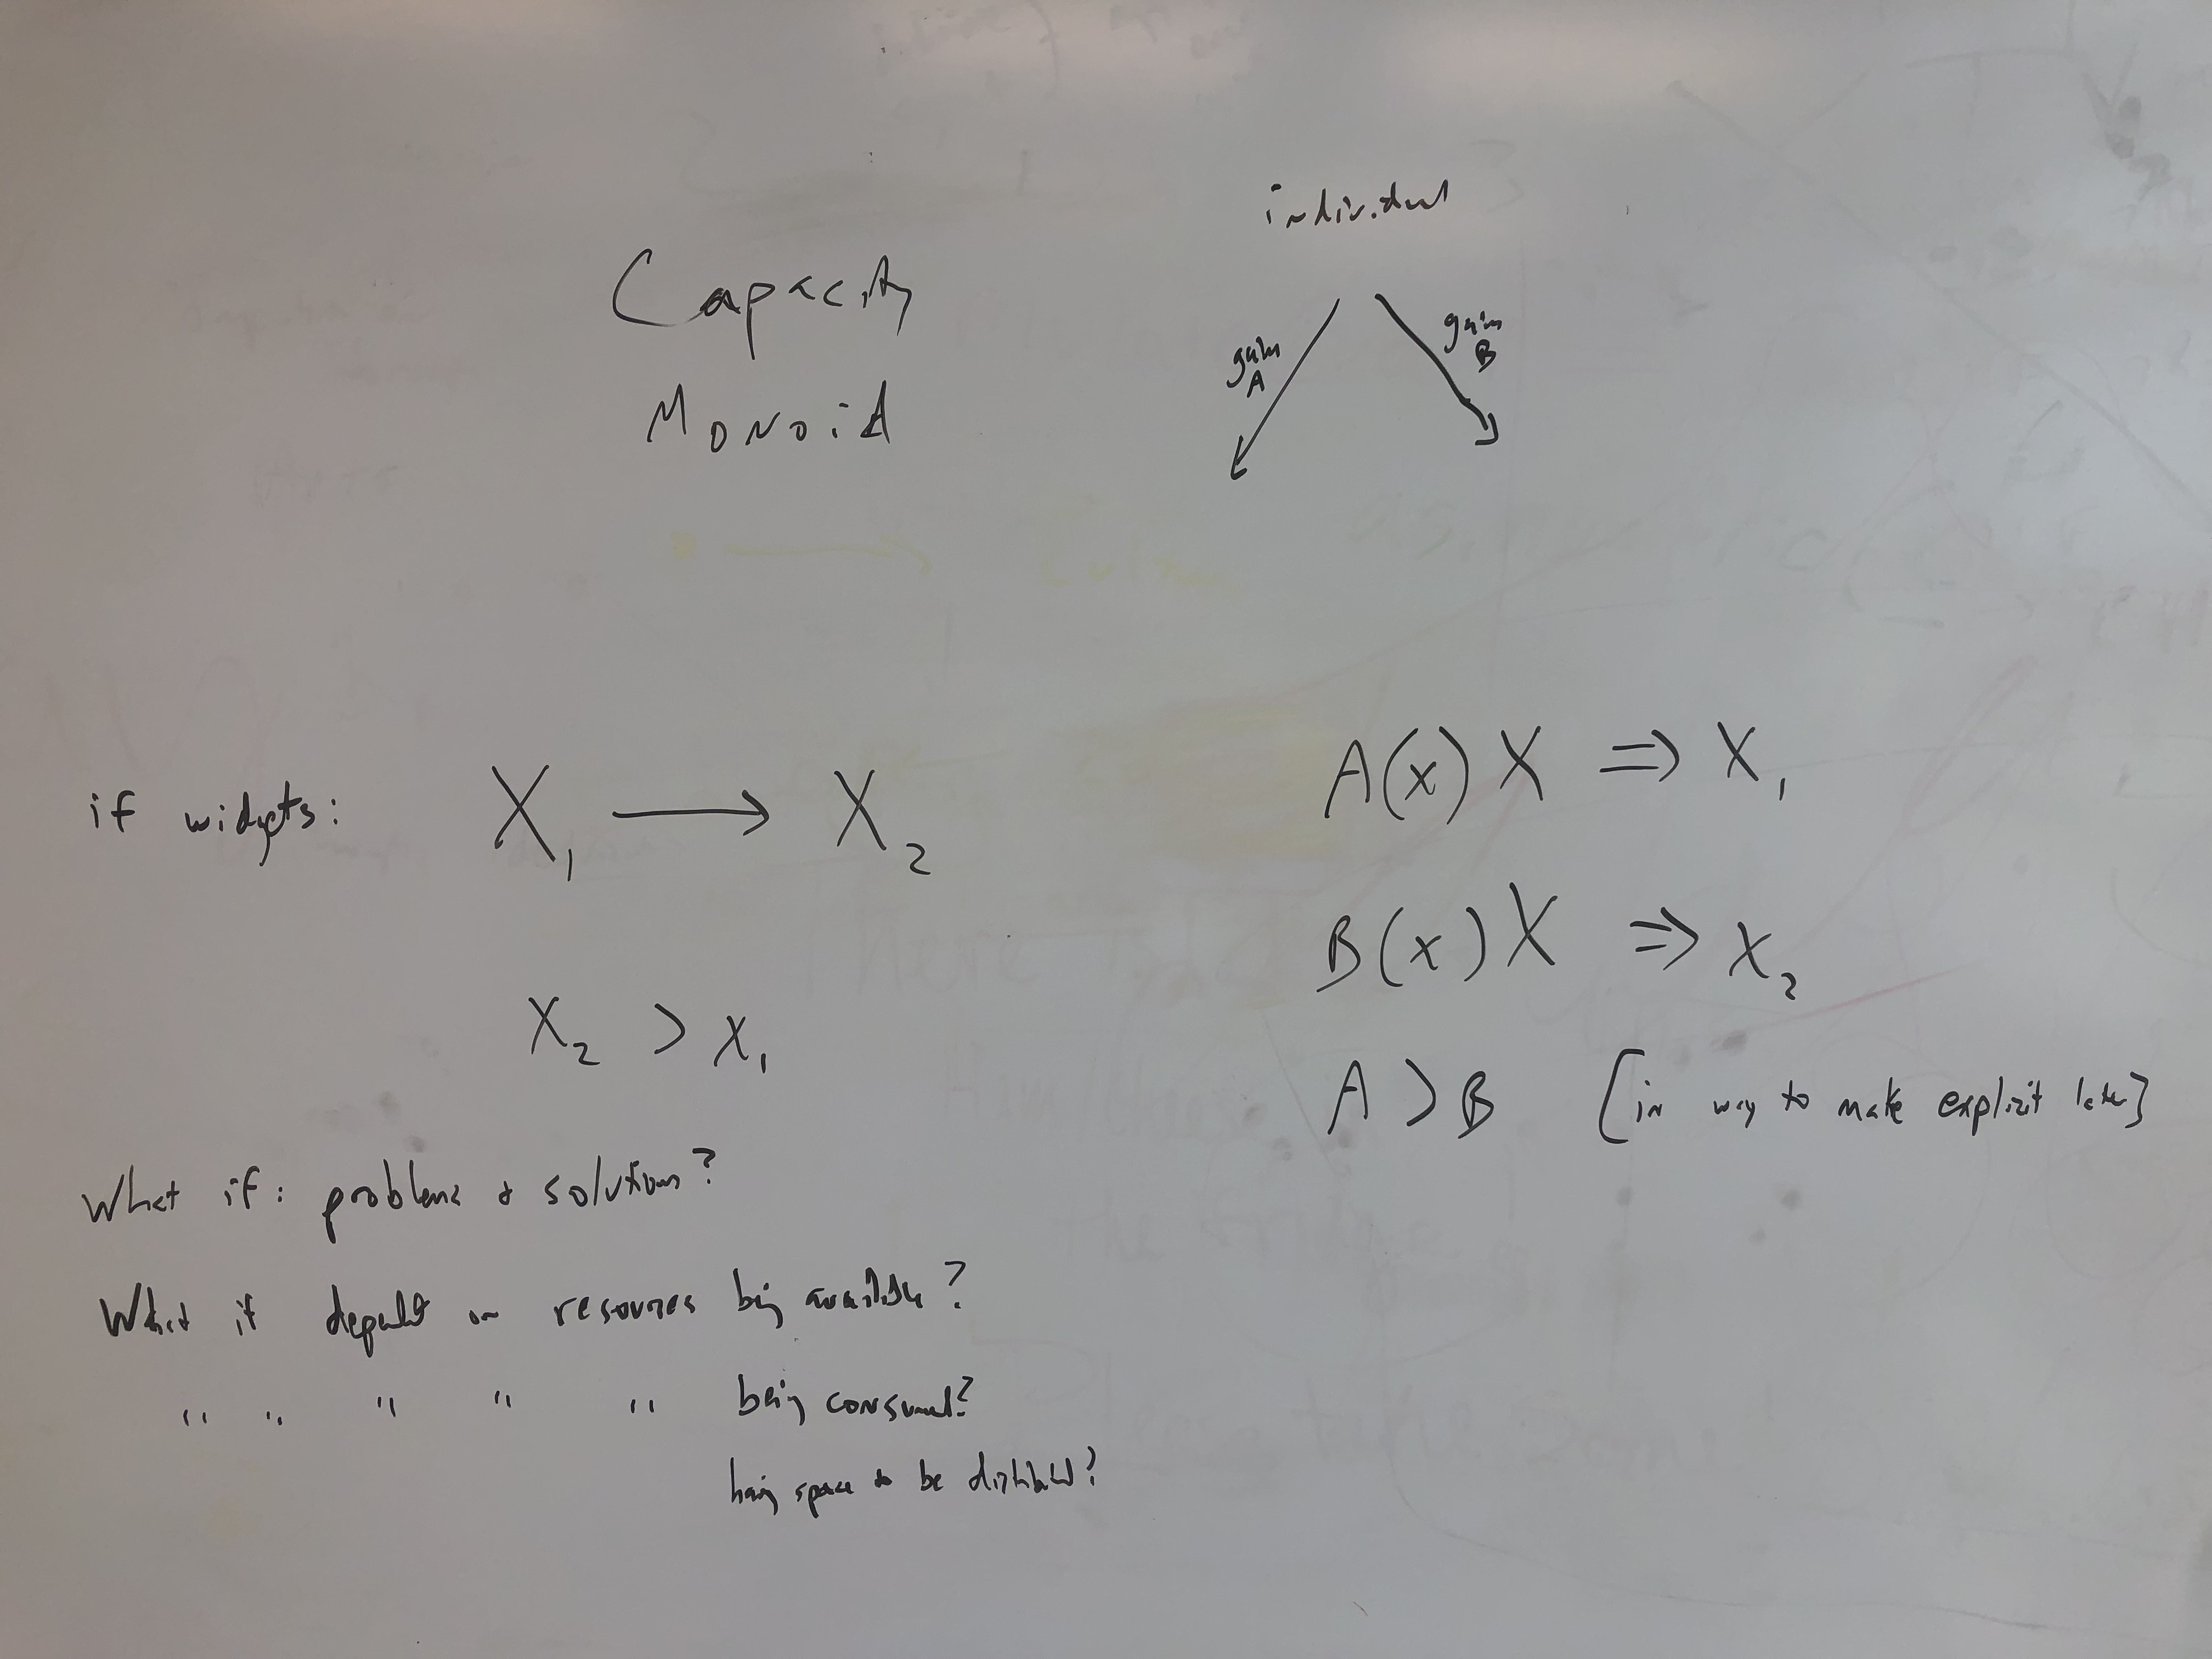 Capacity
Monoid
individual
gain
A
gain
B
if widgets: X₁ → X₂
X₂ > X₁
A(x) X ⇒ X₁
B(x) X ⇒ X₂
A > B [in way to make explicit later]
What if: problems & solutions?
What if depends on resources being available?
" " " " " being consumed?
having space to be distributed?